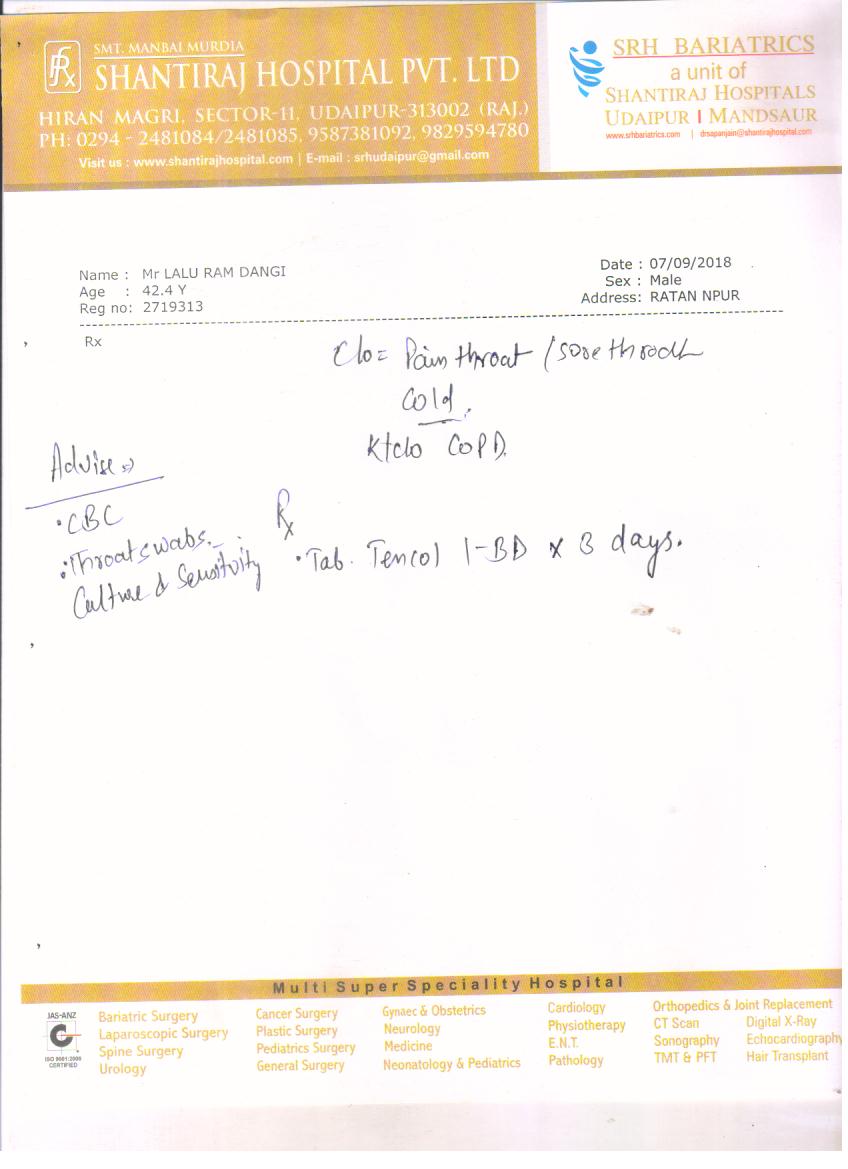 SMT. MANBAI MURDIA
SHANTIRAJ HOSPITAL PVT. LTD
HIRAN MAGRI, SECTOR-11, UDAIPUR-313002 (RAJ.)
PH: 0294 - 2481084/2481085, 9587381092, 9829594780
Visit us : www.shantirajhospital.com | E-mail : srhudaipur@gmail.com
SRH BARIATRICS
a unit of
SHANTIRAJ HOSPITALS
UDAIPUR | MANDSAUR
www.srhbariatrics.com | drsapanjain@shantirajhospital.com
Name : Mr LALU RAM DANGI
Age : 42.4 Y
Reg no: 2719313
Date : 07/09/2018
Sex : Male
Address: RATAN NPUR
Rx
C/o= Pain throat / sore throat
Cold.
K/c/o COPD.
Advise
• CBC
• Throat swabs.
Culture & Sensitivity
Rx
• Tab. Tencol 1-BD x 3 days.
Multi Super Speciality Hospital
JAS-ANZ
ISO 9001:2008
CERTIFIED
Bariatric Surgery
Laparoscopic Surgery
Spine Surgery
Urology
Cancer Surgery
Plastic Surgery
Pediatrics Surgery
General Surgery
Gynaec & Obstetrics
Neurology
Medicine
Neonatology & Pediatrics
Cardiology
Physiotherapy
E.N.T.
Pathology
Orthopedics & Joint Replacement
CT Scan
Sonography
TMT & PFT
Digital X-Ray
Echocardiography
Hair Transplant